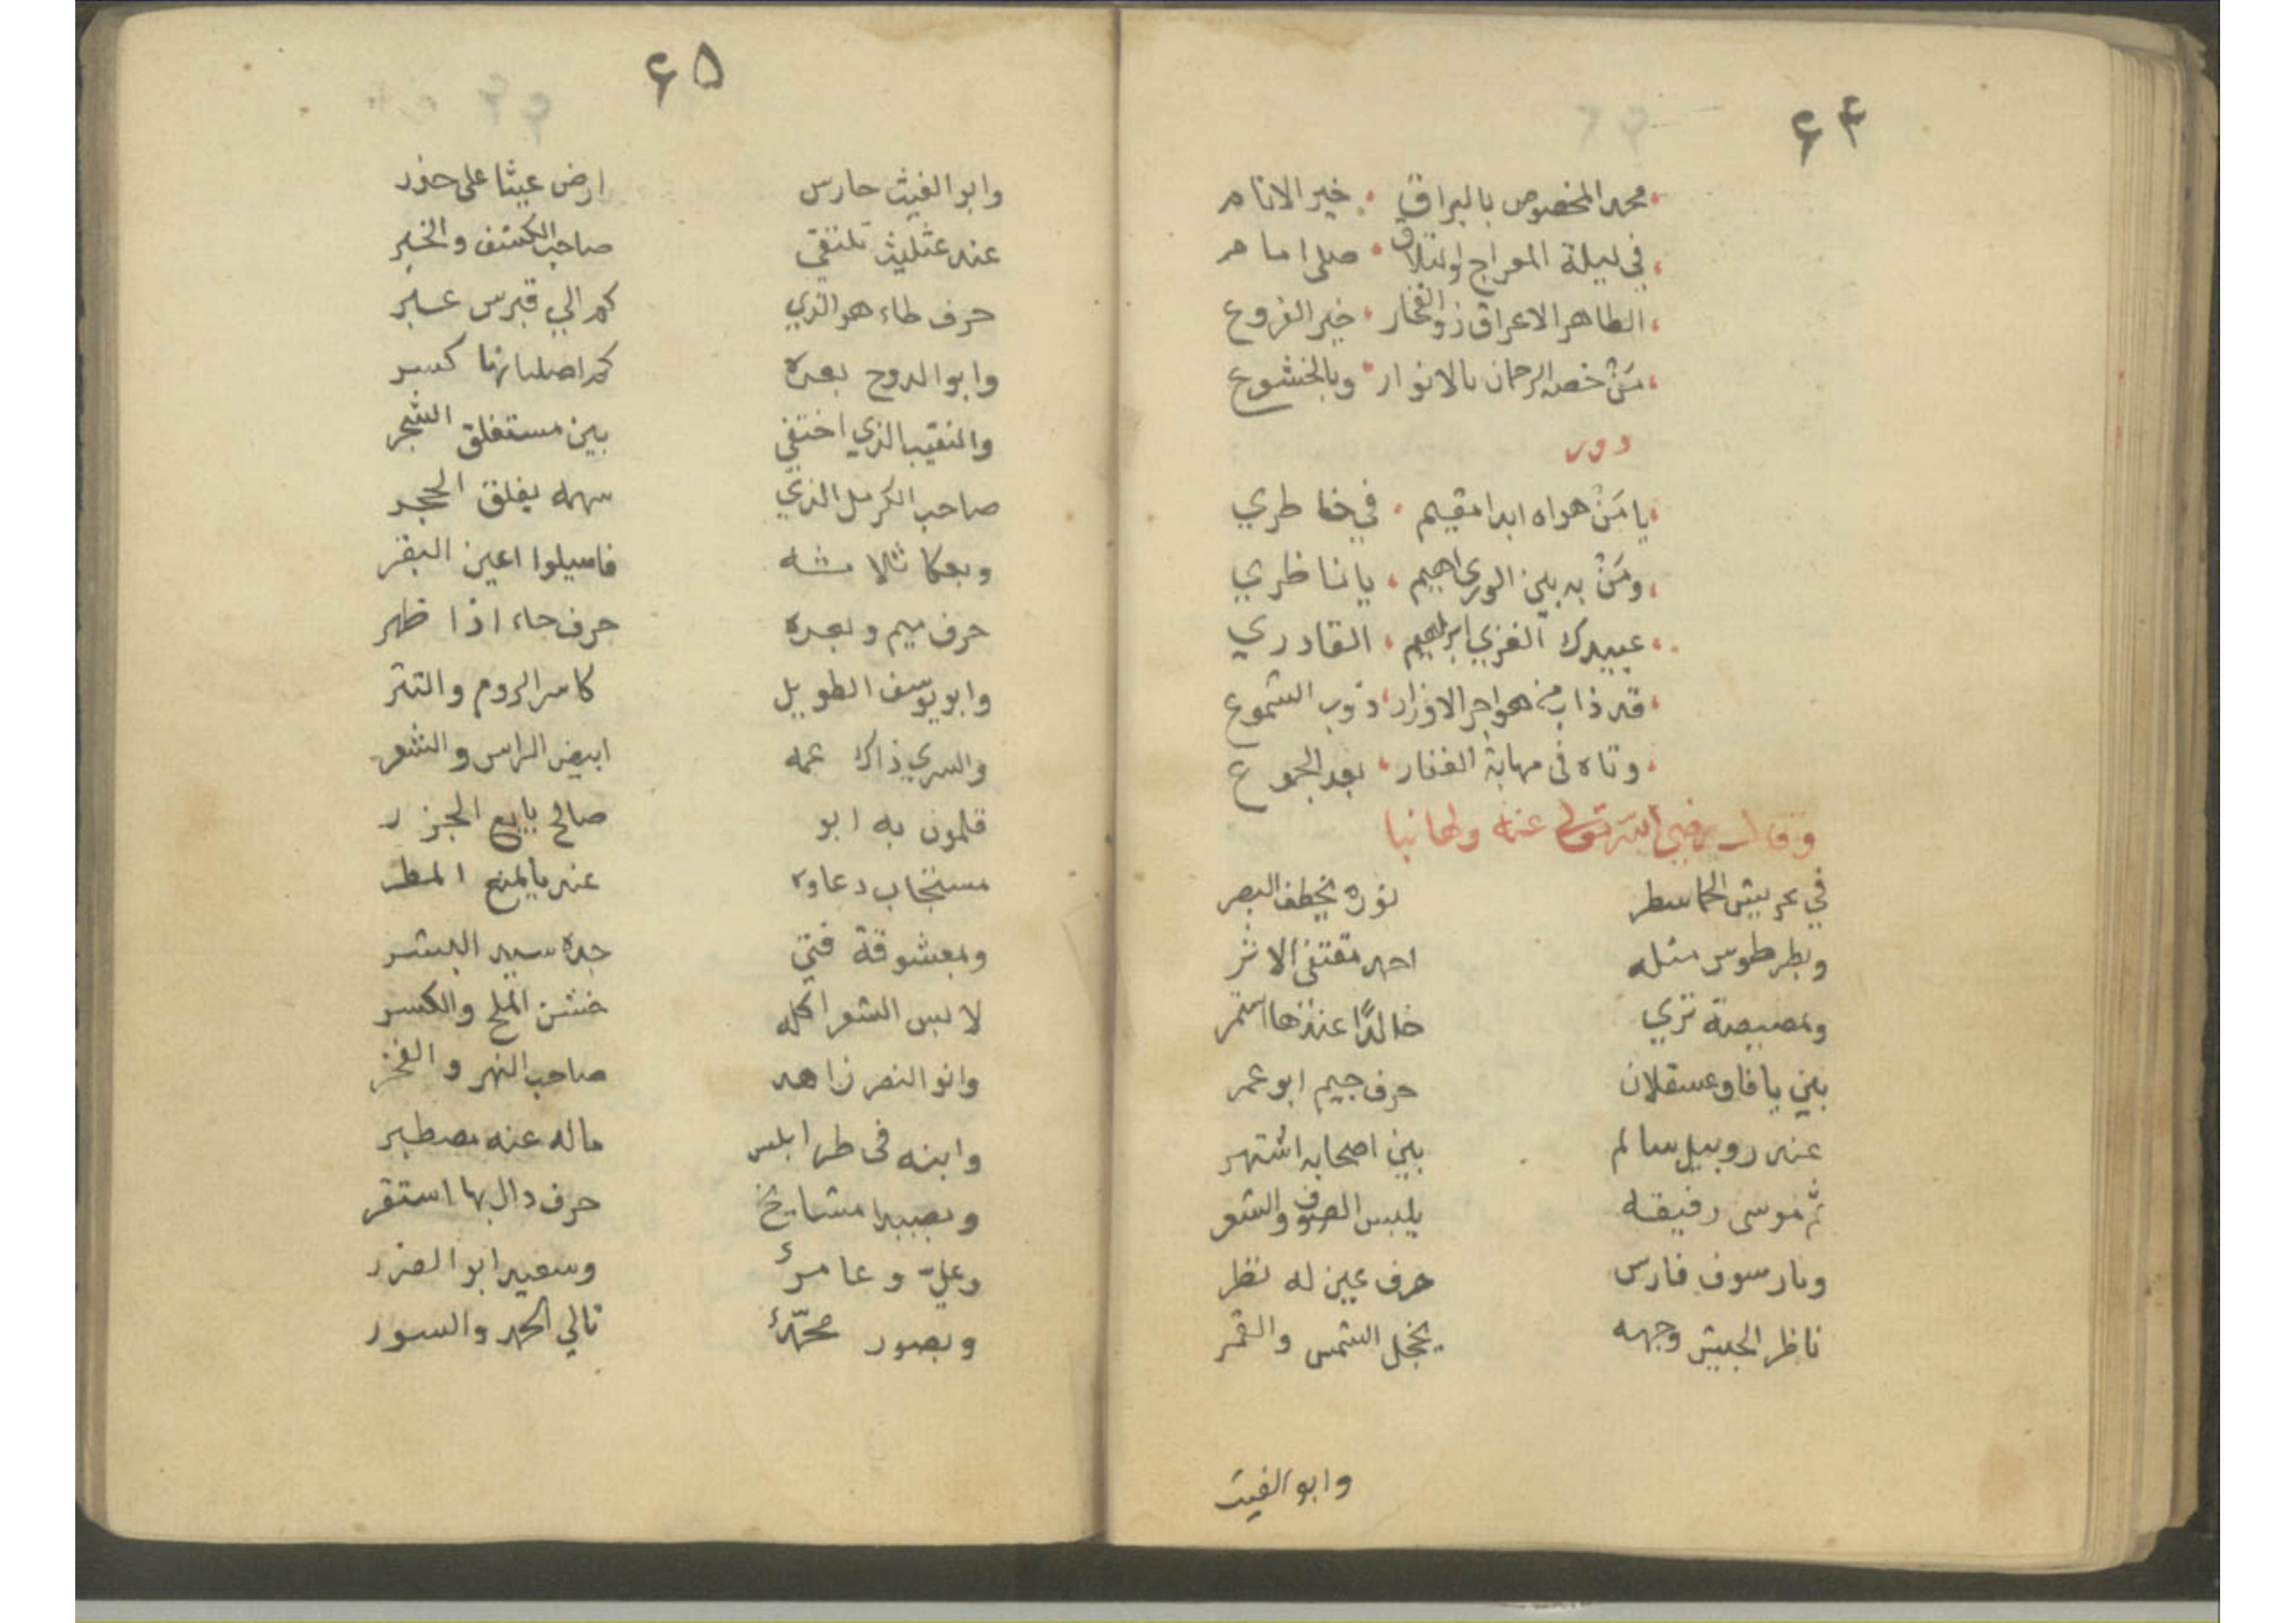 ۶۴
محمد المخصوص بالبراق ، خير الانام
في ليلة المعراج والتلاق ، صلى امام
الطاهر الاعراق ذو الفخار ، خير الفروع
مَنْ خصه الرحمان بالانوار ، وبالخشوع
دور
يا مَنْ هواه ابدا مقيم ، في خاطري
ومَنْ به بين الورى اهيم ، يا ناظري
عبيدك الغزي ابراهيم ، القادري
قد ذاب من هواجر الاوزار ، ذوب الشموع
وتاه في مهابة القفار ، بعد الجموع
وقال رضي الله تعالى عنه
في عريش الحما سطر نوره يخطف البصر
وبطرطوس مثله احمد مقتفي الاثر
وبمصيصة ترى خالدًا عندها استمر
بين يافا وعسقلان حرف جيم ابو عمر
عند روبيل سالم بين اصحابه اشتهر
ثم موسى رفيقه يلبس الصوف والشعر
وبارسوف فارس حرف عين له نظر
ناظر الجيش وجهه يخجل الشمس والقمر
وابو الغيث
۶۵
وابو الغيث حارس ارض عيثا على حذر
عند عثليث تلتقي صاحب الكشف والخبر
حرف طاء هو الذي كم الى قبرس عبر
وابو الروح بعده كم اصلبانها كسر
والنقيب الذي اختفى بين مستغلق الشجر
صاحب الكرمل الذي سهمه يفلق الحجر
وبعكا ثلاثة فاسيلوا اعين البقر
حرف ميم وبعده حرف حاء اذا ظهر
وابو يوسف الطويل كاسر الروم والتتر
والسري ذاك عمه ابيض الراس والشعر
قلمون به ابو صالح بايع الجزر
مستجاب دعاوه عندما يمنع المطر
وبعشوقة فتى جده سيد البشر
لابس الشعر اكله خشن الملح والكسر
وابو النصر زاهد صاحب النهر والفخر
وابنه في طرابلس ماله عنه مصطبر
وبصيدا مشايخ حرف دال بها استقر
وعليّ وعامرٌ وسعيد ابو الضرر
وبصور محمّدٌ تالي الحمد والسور